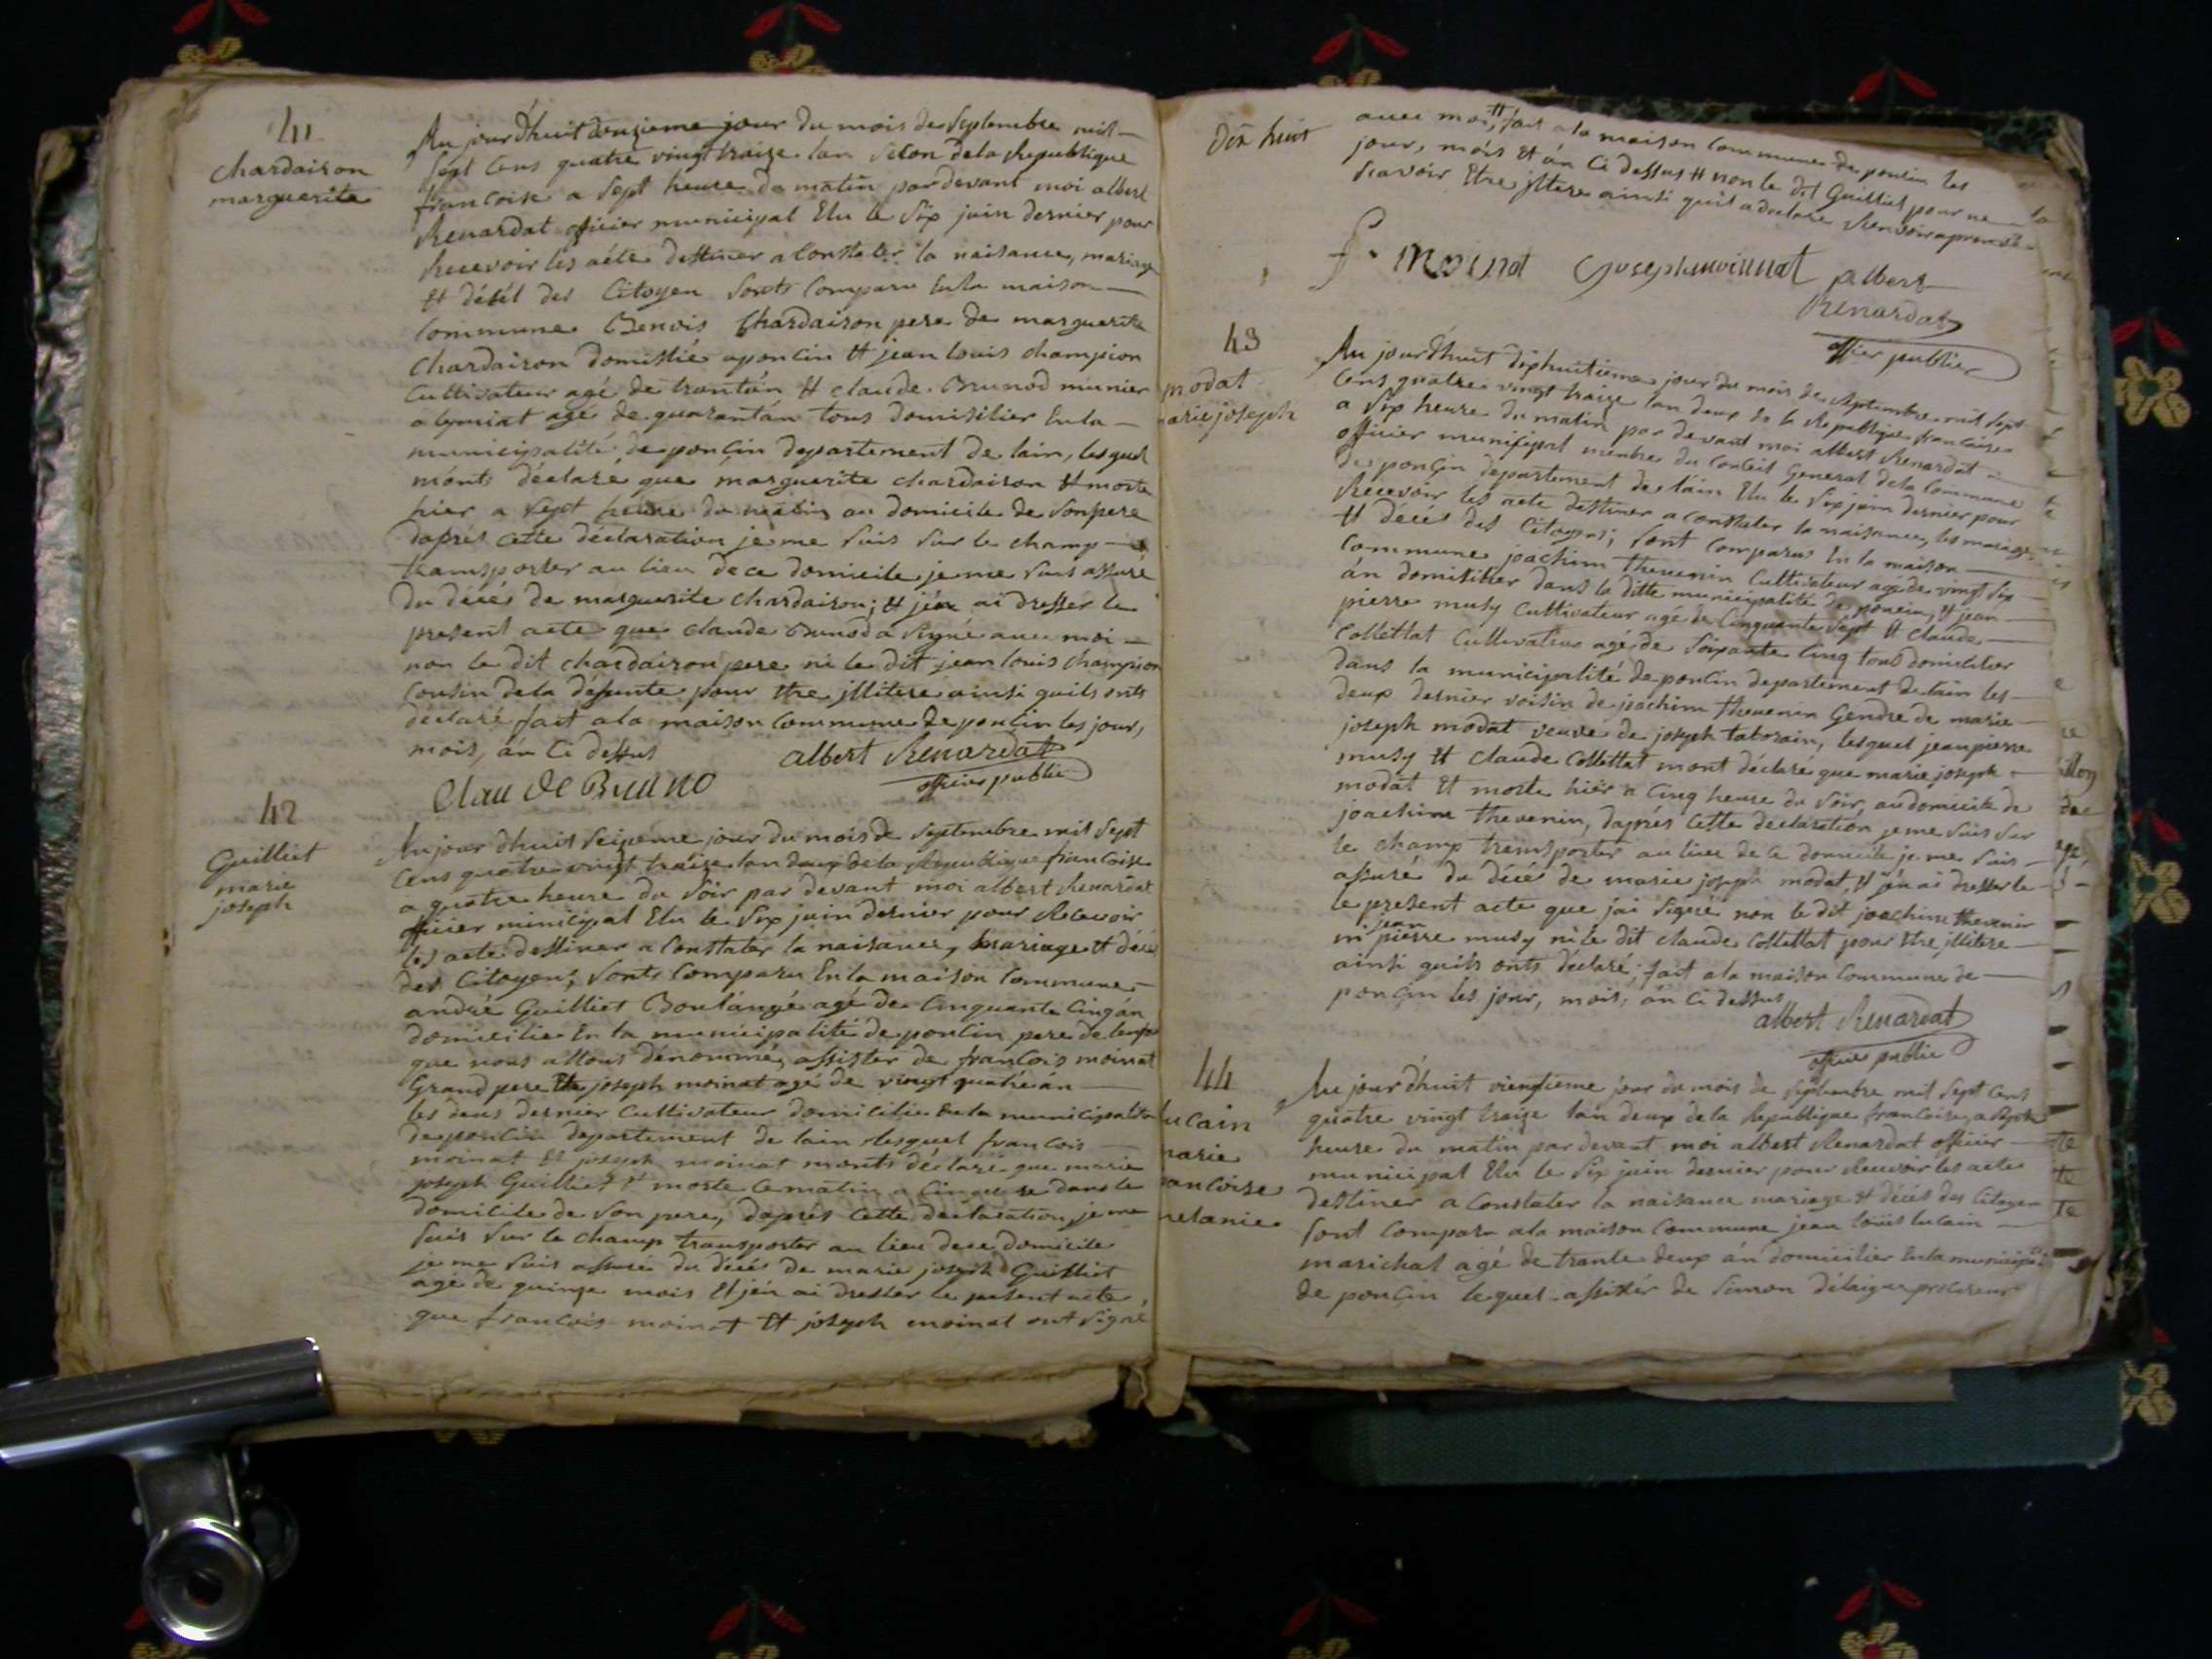 41
chardaison
marguerite
Aujourdhuit douzieme jour du mois de Septembre mil
Sept Cens quatre vingt traize lan Selon dela Republique
francoise a Sept heure de matin par devant moi albert
Renardat officier municipal Elu le Six juin dernier pour
Recevoir les acte destiner a Constater la naisance, mariage
Et décél des Citoyen Sonts Comparu En la maison
Commune Benois Chardaison pere de marguerite
Chardaison domislié aponcin Et jean louis champion
Cultivateur agé de trantán Et claude Brunod munier
agé de quarantán tous domisilier En la
municipalité de poncin departement de lain, lesquel
monts déclaré que marguerite chardaison Et morte
hier a Sept heure du matin au domicile de Son pere
daprés Cette déclaration je me Suis Sur le champ
transporter au lieu de ce domicile je me Suis assuré
du décés de marguerite Chardaison; Et jén ai dresser le
present acte que claude Brunod a Signé avec moi
non le dit chardaison pere ni le dit jean louis champion
Cousin dela défunte pour Etre jlliterе ainsi quils onts
déclaré fait a la maison Commune de poncin les jour,
mois, án Ci dessus
albert Renardat
officier public
Clau de Bruno
42
Guilliet
marie
joseph
Aujourdhuit Seizieme jour du mois de Septembre mil Sept
Cens quatre vingt traize lan deux de la Republique francoise
a quatre heure du Soir par devant moi albert Renardat
officier minicipal Elu le Six juin dernier pour Recevoir
les acte destiner a Constater la naisance, mariage Et décé
des Citoyen; Sonts Comparu En la maison Commune
andré Guilliet Boulángé agé de Cinquante Cinq án
domicilié En la municipalité de poncin pere de lenfan
que nous allons dénommé, assister de francois moinat
Grand pere Et joseph moinat agé de vingt quatre án
les deus dernier Cultivateur domicilie En la municipalité
de poncin departement de lain lesquel francois
moinat Et joseph moinat monts déclaré que marie
joseph Guilliet Et morte Ce matin a Cinq dans le
domicile de Son pere, daprés Cette declaration je me
Suis Sur le champ transporter au lieu de ce domicile
je me Suis assuré du décés de marie joseph Guilliet
agé de quinze mois Et jén ai dresser le present acte
que francois moinat Et joseph moinat ont Signé
dix huit
avec moi, fait a la maison Commune de poncin les
jour, mois Et án Ci dessus non le dit Guilliet pour ne
Scavoir Etre jlitere ainsi quil a declaré
f. moinat joseph moinnat albert
Renardat
offier public
43
modat
arie joseph
Aujourdhuit dixhuitieme jour du mois de Septembre mil Sept
Cens quatre vingt traize lan deux de la Republique francoise
a Six heure du matin par devant moi albert Renardat
officier municipal membre du Conceil General dela Commune
de poncin departement de lain Elu le Six juin dernier pour
Recevoir les acte destiner a Constater la naisance, les mariage
Et décés des Citoyens; Sont Comparus En la maison
Commune joachim thevenin Cultivateur agé de vingt Six
án domisilier dans la ditte municipalité de poncin, Et jean
pierre musy Cultivateur agé de Cinquante Sept Et claude
Collettat Cultivateur agé de Soixante Cinq tous domicilier
dans la municipalité de poncin departement de lain les
deux dernier voisin de joachim thevenin Gendre de marie
joseph modat veuve de joseph taborain, lesquel jean pierre
musy Et claude Collettat mont déclaré que marie joseph
modat Et morte hiér a Cinq heure du Soir, au domicile de
joachim thevenin, daprés Cette declaration je me Suis Sur
le champ transporter au lieu de Ce domicile je me Suis
assuré du décés de marie joseph modat, Et jén ai dresser le
le present acte que jai Signé non le dit joachim thevenin
ni jean pierre musy ni le dit claude Collettat pour Etre jllitere
ainsi quils onts déclaré; fait a la maison Commune de
poncin les jour, mois, án Ci dessus
albert Renardat
officier public
44
ucain
marie
ancoise
melanie
Aujourdhuit viengtieme jour du mois de Septembre mil Sept Cens
quatre vingt traize lan deux de la Republique francoise, a Sept
heure du matin par devant moi albert Renardat officier
municipal Elu le Six juin dernier pour Recevoir les acte
destiner a Constater la naisance mariage Et décés des Citoyen
Sont Comparu a la maison Commune jean louis lucain
marichal agé de trante deux án domicilier En la municipali
de poncin lequel assistér de Simon délaigue procureur